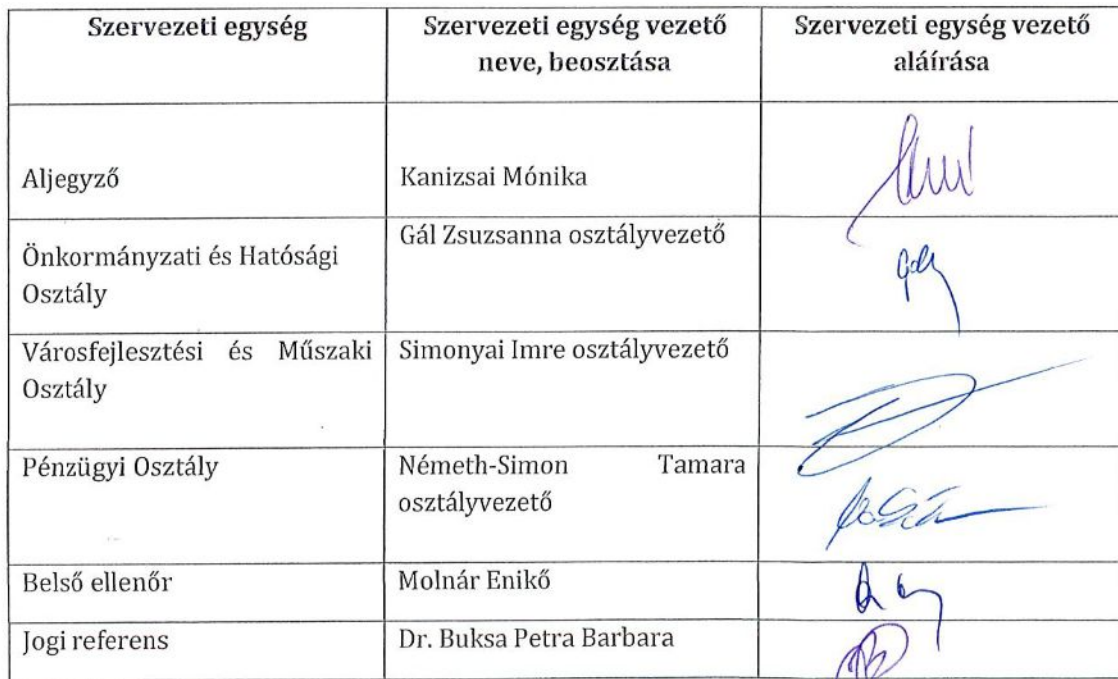 Szervezeti egység
Szervezeti egység vezető
neve, beosztása
Szervezeti egység vezető
aláírása
Aljegyző
Kanizsai Mónika
Önkormányzati és Hatósági
Osztály
Gál Zsuzsanna osztályvezető
Városfejlesztési és Műszaki
Osztály
Simonyai Imre osztályvezető
Pénzügyi Osztály
Németh-Simon Tamara
osztályvezető
Belső ellenőr
Molnár Enikő
Jogi referens
Dr. Buksa Petra Barbara